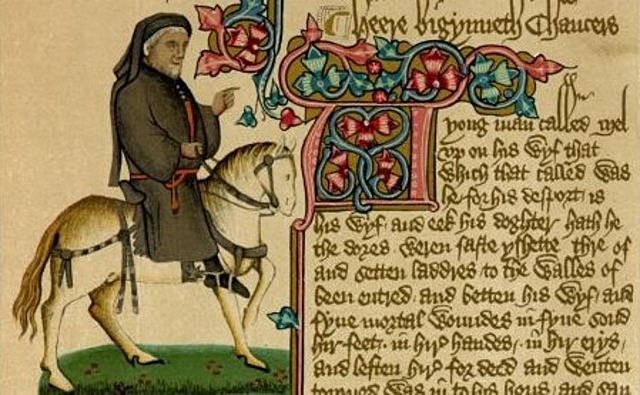 heere bigynneth Chaucers
A yong man called Mel
vp on his wyf that
which that called was
he for his desport is
his wyf and eek his doghter hath he
the dores weren faste yshette thre of
and setten laddres / to the walles of
been entred / and betten his wyf / and
fyue mortal woundes in fyue sond
hir feet / in hir handes / in hir erys /
and leften hir for deed and wenten
torned was in to his hous / and